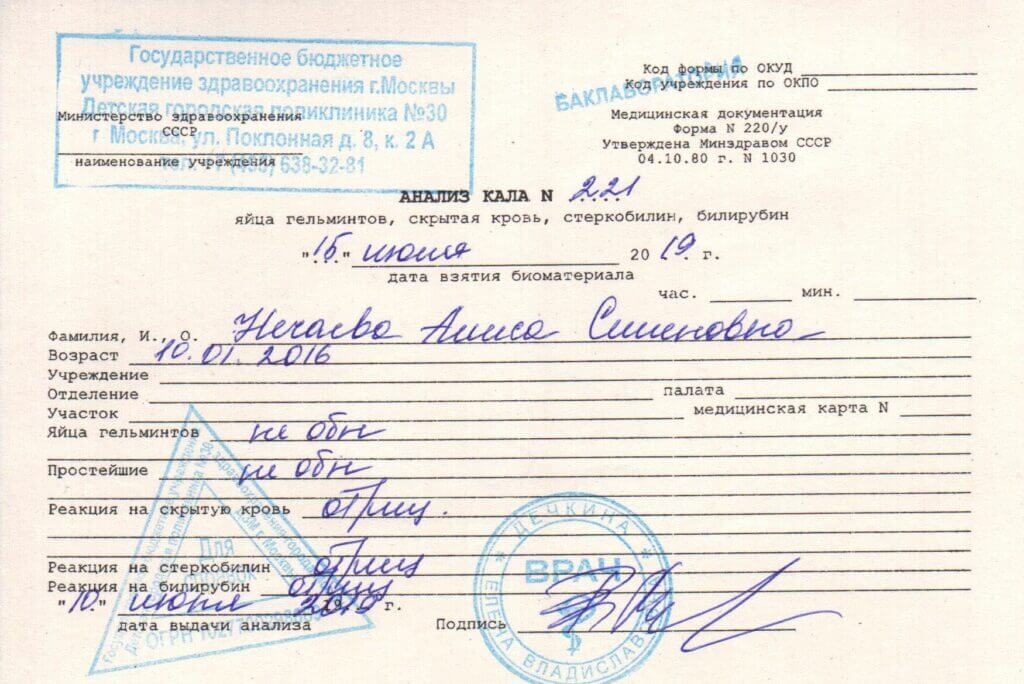 Государственное бюджетное
учреждение здравоохранения г.Москвы
Детская городская поликлиника №30
г. Москва, ул. Поклонная д. 8, к. 2 А
638-32-81
Министерство здравоохранения
СССР
наименование учреждения
БАКЛАБОРАТОРИЯ
Код формы по ОКУД
Код учреждения по ОКПО
Медицинская документация
Форма N 220/у
Утверждена Минздравом СССР
04.10.80 г. N 1030
АНАЛИЗ КАЛА N 221
яйца гельминтов, скрытая кровь, стеркобилин, билирубин
"15" июля 2019 г.
дата взятия биоматериала
час. мин.
Фамилия, И., О. Нечаева Алиса Семеновна
Возраст 10.01.2016
Учреждение
Отделение палата
Участок медицинская карта N
Яйца гельминтов не обн
Простейшие не обн
Реакция на скрытую кровь отриц.
Реакция на стеркобилин отриц
Реакция на билирубин отриц
"10." июля 2019 г.
дата выдачи анализа Подпись
Для
справок
ОГРН
ДЕЧКИНА
ВРАЧ
ВЛАДИСЛАВ